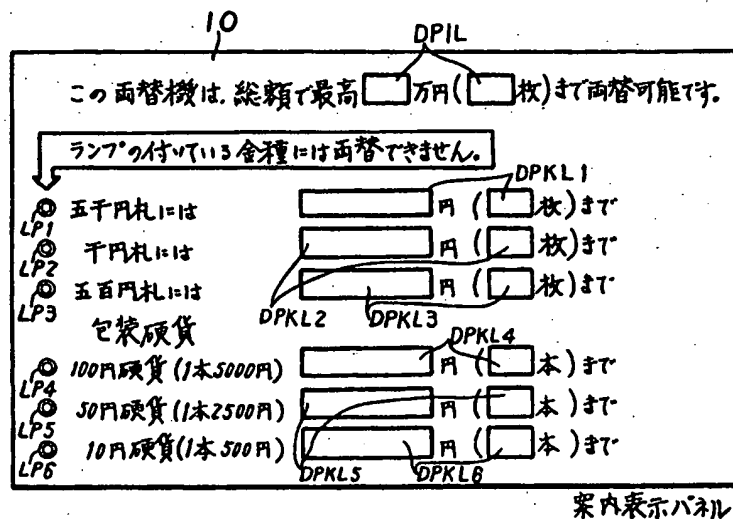 10
DPIL
この両替機は、総額で最高 万円( 枚)まで両替可能です。
ランプの付いている金種には両替できません。
DPKL1
LP1 五千円札には 円 ( 枚)まで
LP2 千円札には 円 ( 枚)まで
LP3 五百円札には 円 ( 枚)まで
DPKL2 DPKL3
包装硬貨
DPKL4
LP4 100円硬貨(1本5000円) 円 ( 本)まで
LP5 50円硬貨(1本2500円) 円 ( 本)まで
LP6 10円硬貨(1本500円) 円 ( 本)まで
DPKL5 DPKL6
案内表示パネル